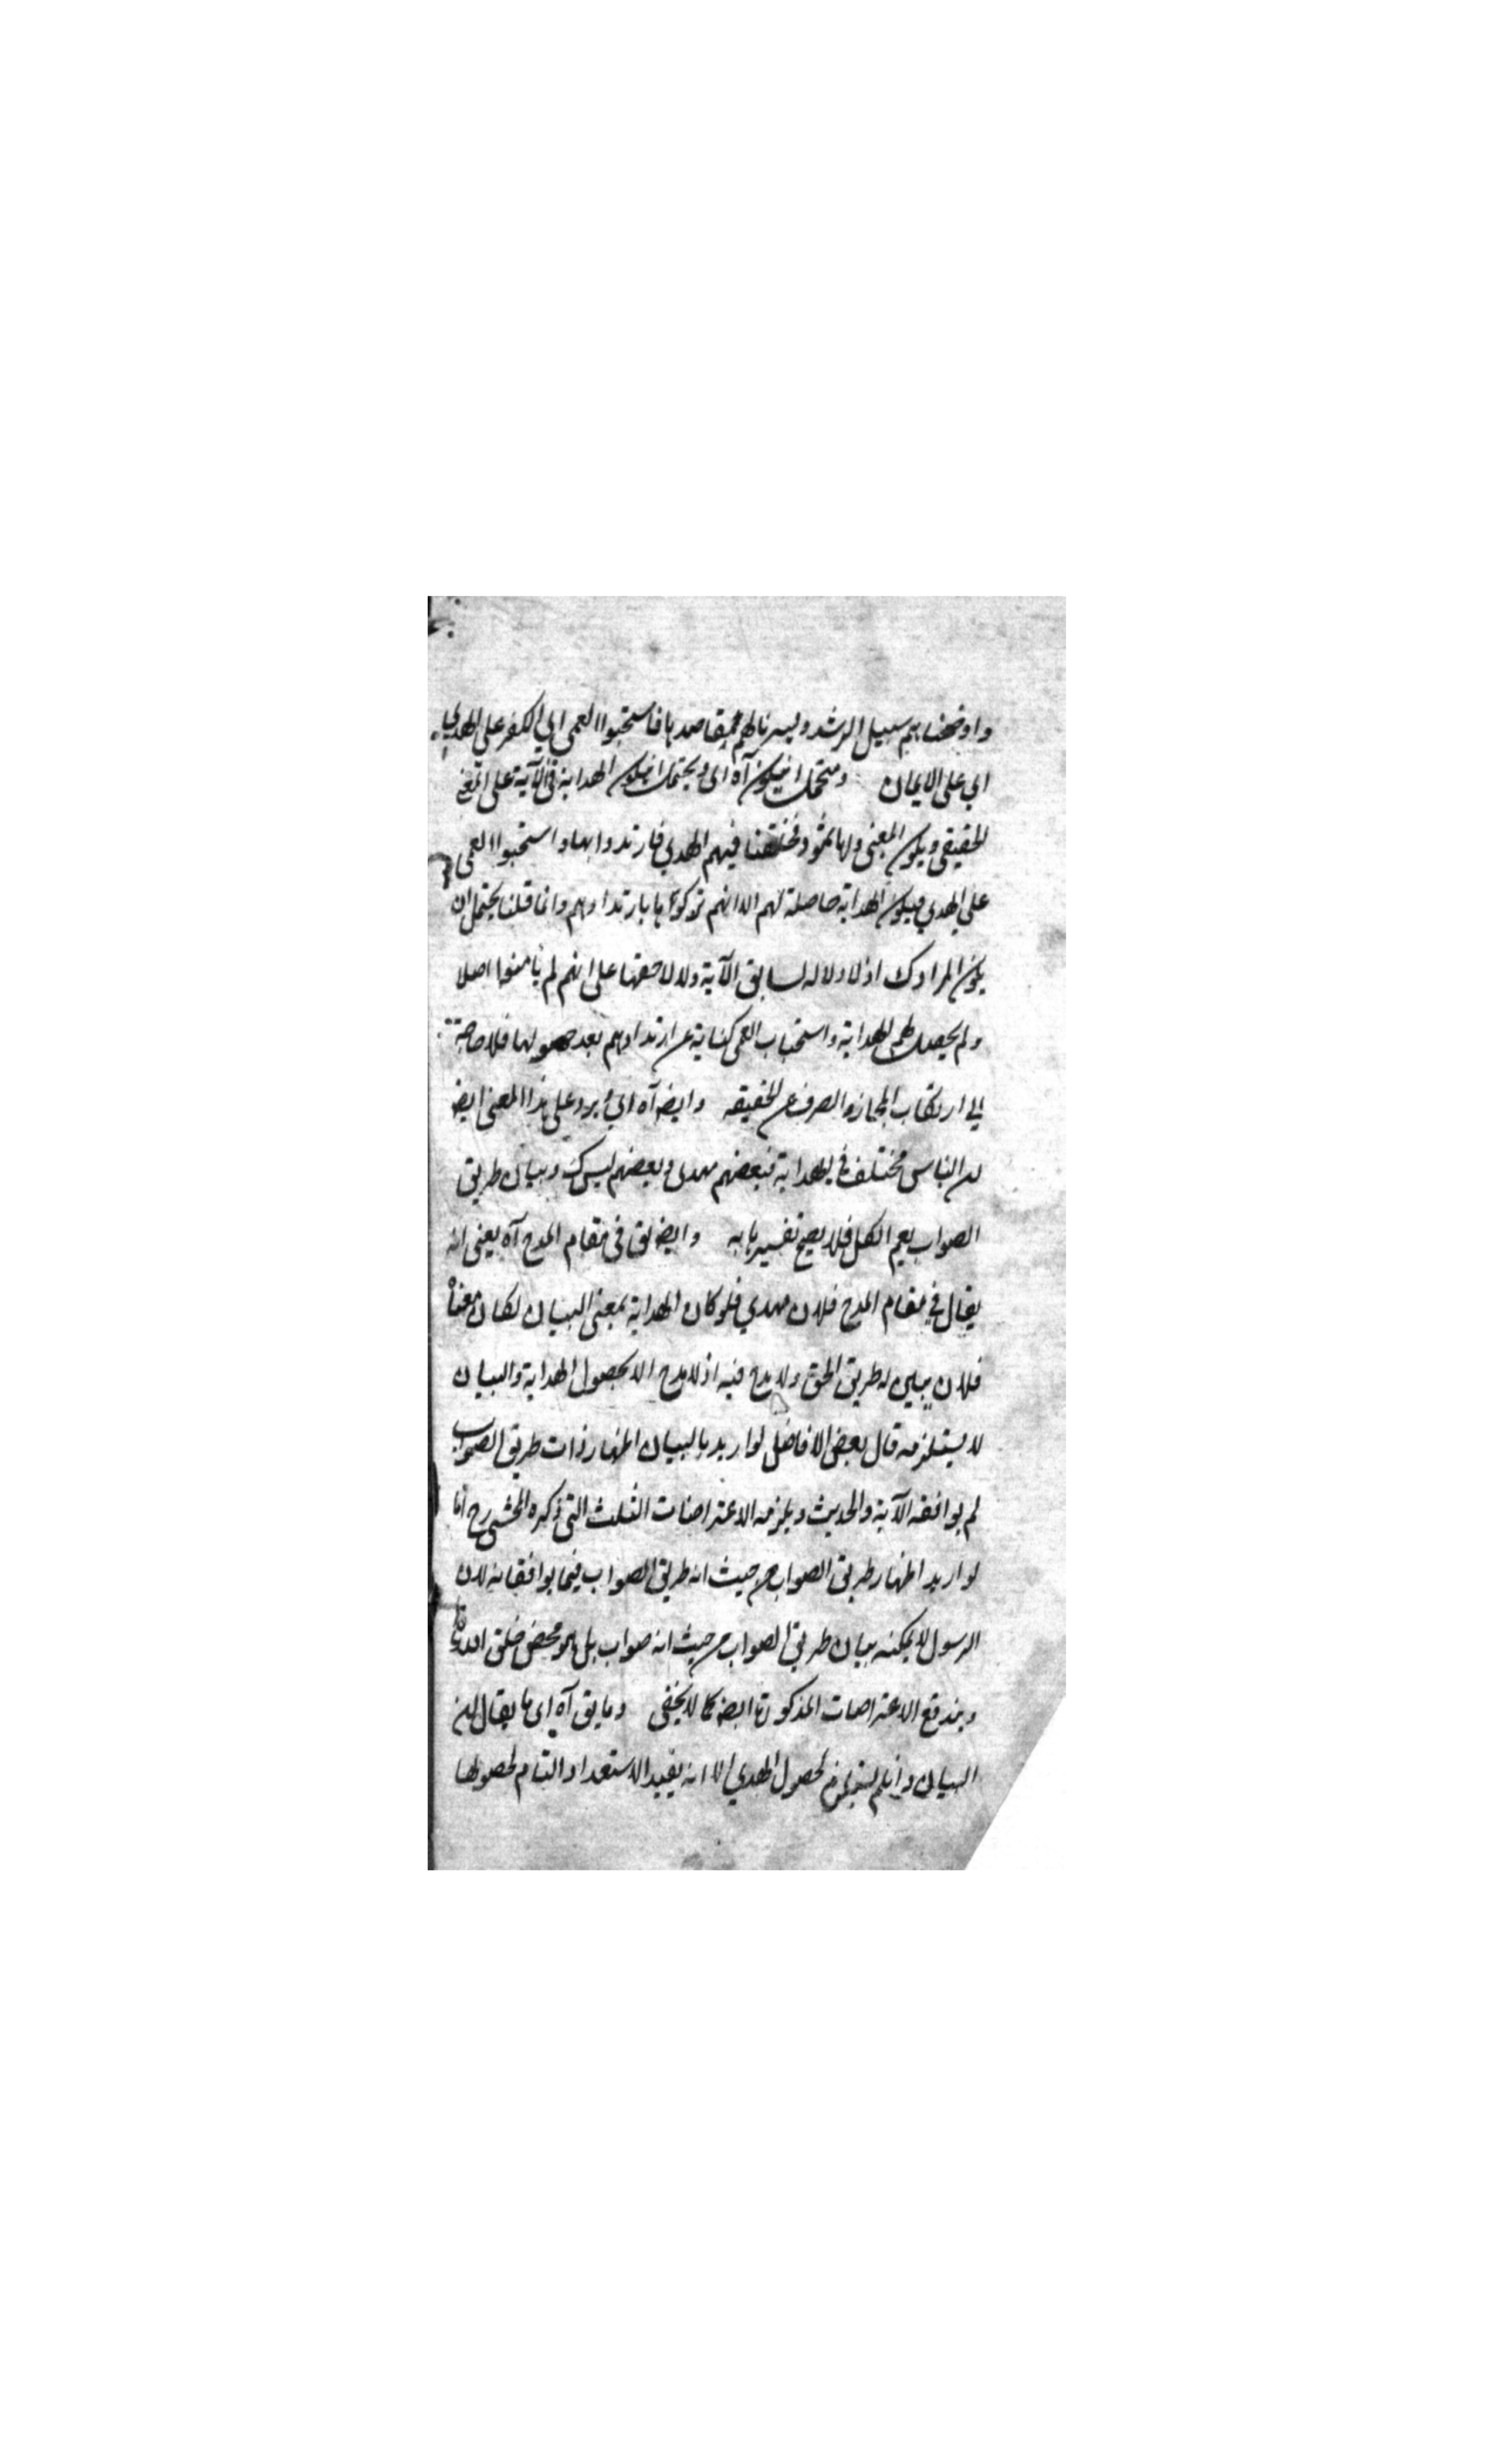 واوضحنا بهم سبيل الرشد ويسرنا لهم مقاصدها فاستحبوا العمى اي الكفر على الهدى
اي على الايمان ويحتمل ان يكون آه اى ويحتمل ان يكون الهداية فى الآية على المعنى
الحقيقي ويكون المعنى واما ثمود فخلقنا فيهم الهدي فارتدوا بها واستحبوا العمى
على الهدي فيكون الهداية حاصلة لهم الا انهم تركوها بارتدادهم وانما قلنا يحتمل ان
يكون المراد ك اذ لا دلالة لسابق الآية ولا للاحقها على انهم لم يأمنوا اصلا
ولم يحصل لهم الهداية واستحباب العمى كناية عن ارتدادهم بعد حصولها فلا حاجة
الي ارتكاب المجاز والصرف عن الحقيقه وايضه آه اي يرد على هذا المعنى ايضه
ان الناس مختلف في الهداية فبعضهم مهدى وبعضهم ليس ك وبيان طريق
الصواب يعم الكل فلا يصح تفسيرها به وايضه يق فى مقام المدح آه يعنى انه
يقال في مقام المدح فلان مهدي فلو كان الهداية بمعنى البيان لكان معناه
فلان مبين له طريق الحق ولا مدح فيه اذ لا مدح الا بحصول الهداية والبيان
لا يستلزمه قال بعض الافاضل لو اريد بالبيان اظهار ذات طريق الصواب
لم يوافقه الآية والحديث ويلزمه الاعتراضات الثلث التى ذكره المحشى رح اما
لو اريد اظهار طريق الصواب من حيث انه طريق الصواب فيما يوافقانه لان
الرسول لا يمكنه بيان طريق الصواب من حيث انه صواب بل هو محض خلق الله تع
ويندفع الاعتراضات المذكورة ايضه كما لا يخفى وما يق آه اى ما يقال ان
البيان وان لم يستلزم لحصول الهدي الا انه يفيد الاستعداد التام لحصولها